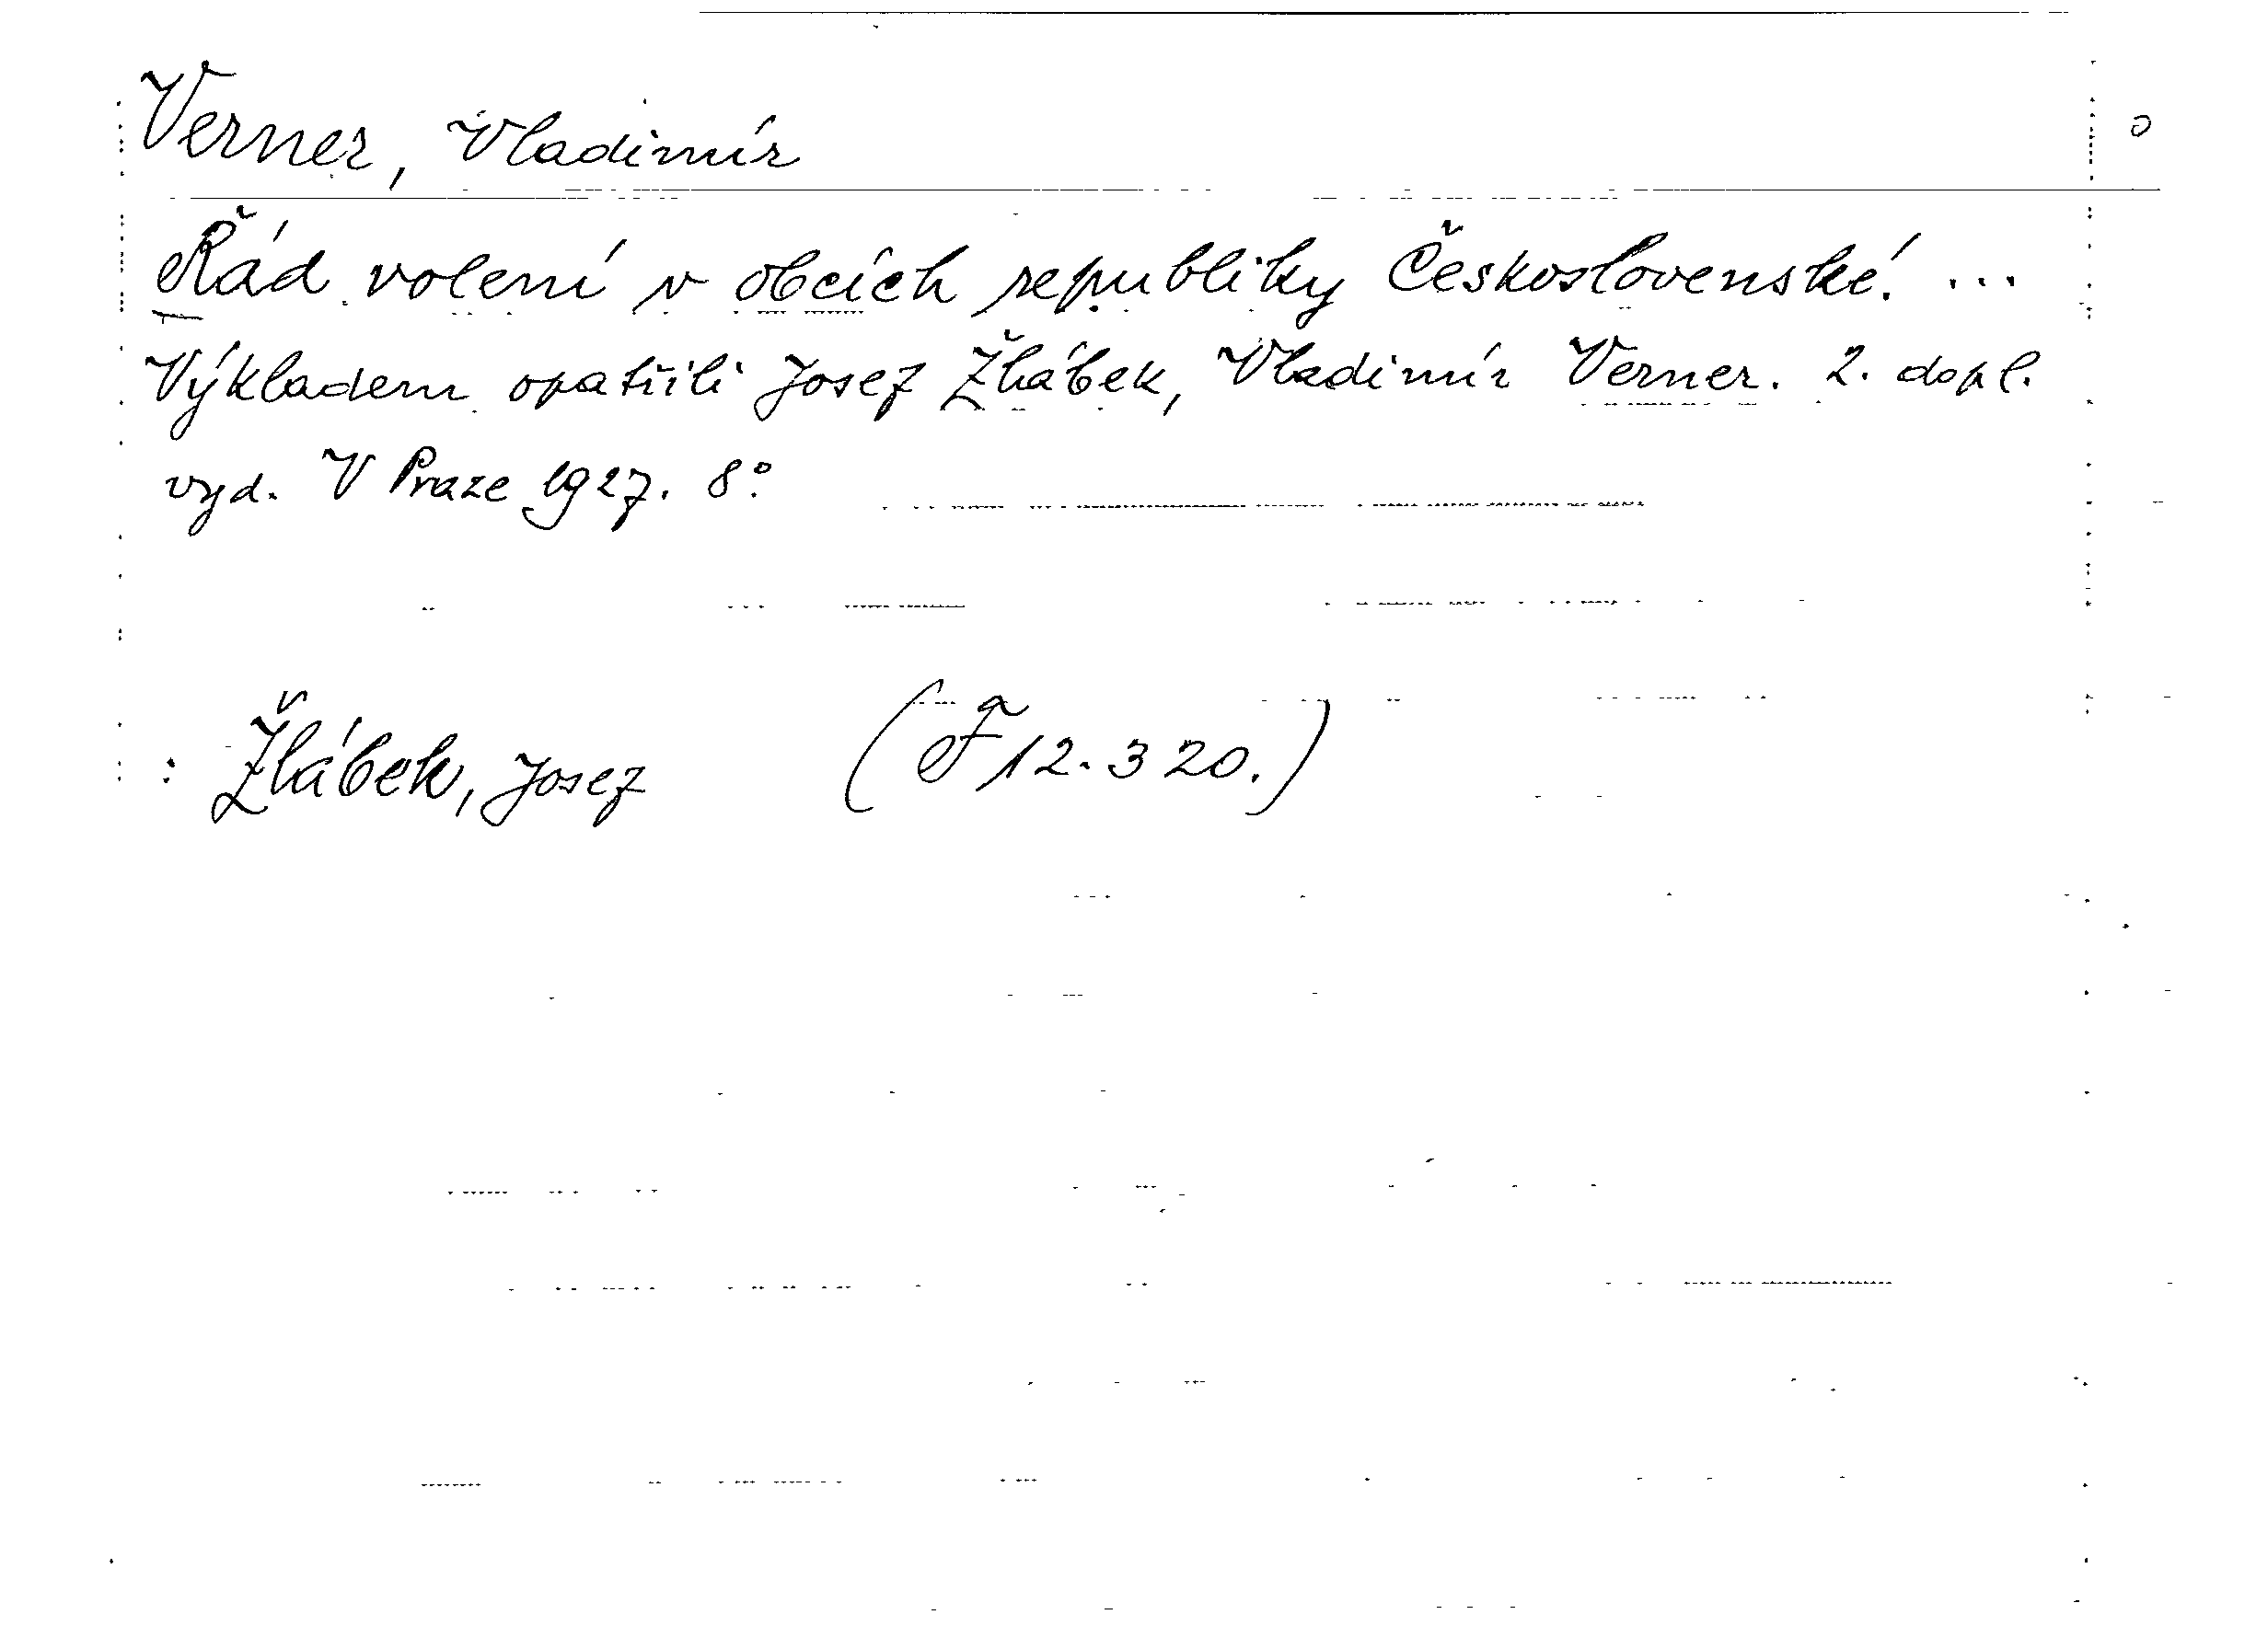 Verner, Vladimír
Řád volení v obcích republiky Československé. ...
Výkladem opatřili Josef Žhábek, Vladimír Verner. 2. dopl.
vyd. V Praze 1927. 8°.
: Žhábek, Josef (F 12.320.)